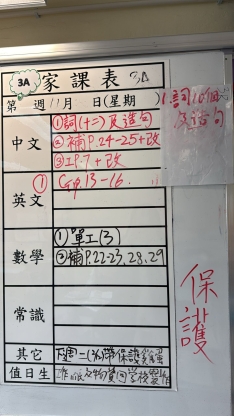 3A 家課表 3A
第 週11月 日(星期 )
中文
①詞(十二)及造句
②補P.24-25+改
③工P.7+改
英文
① Gp.13-16.
數學
①單工(3)
②補P.22-23,28,29
常識
其它
下週二(%)帶保護
值日生
及物質回學校製作
1.詞10個
及造句
保護